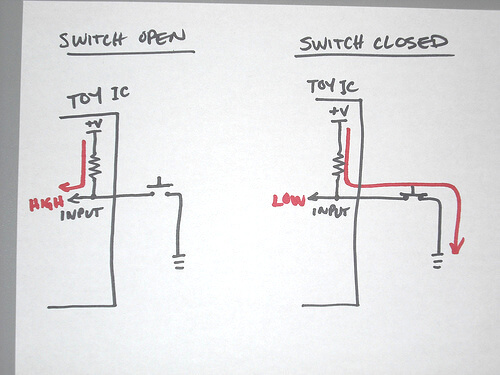 SWITCH OPEN
TOY IC
+V
HIGH
INPUT
SWITCH CLOSED
TOY IC
+V
LOW
INPUT